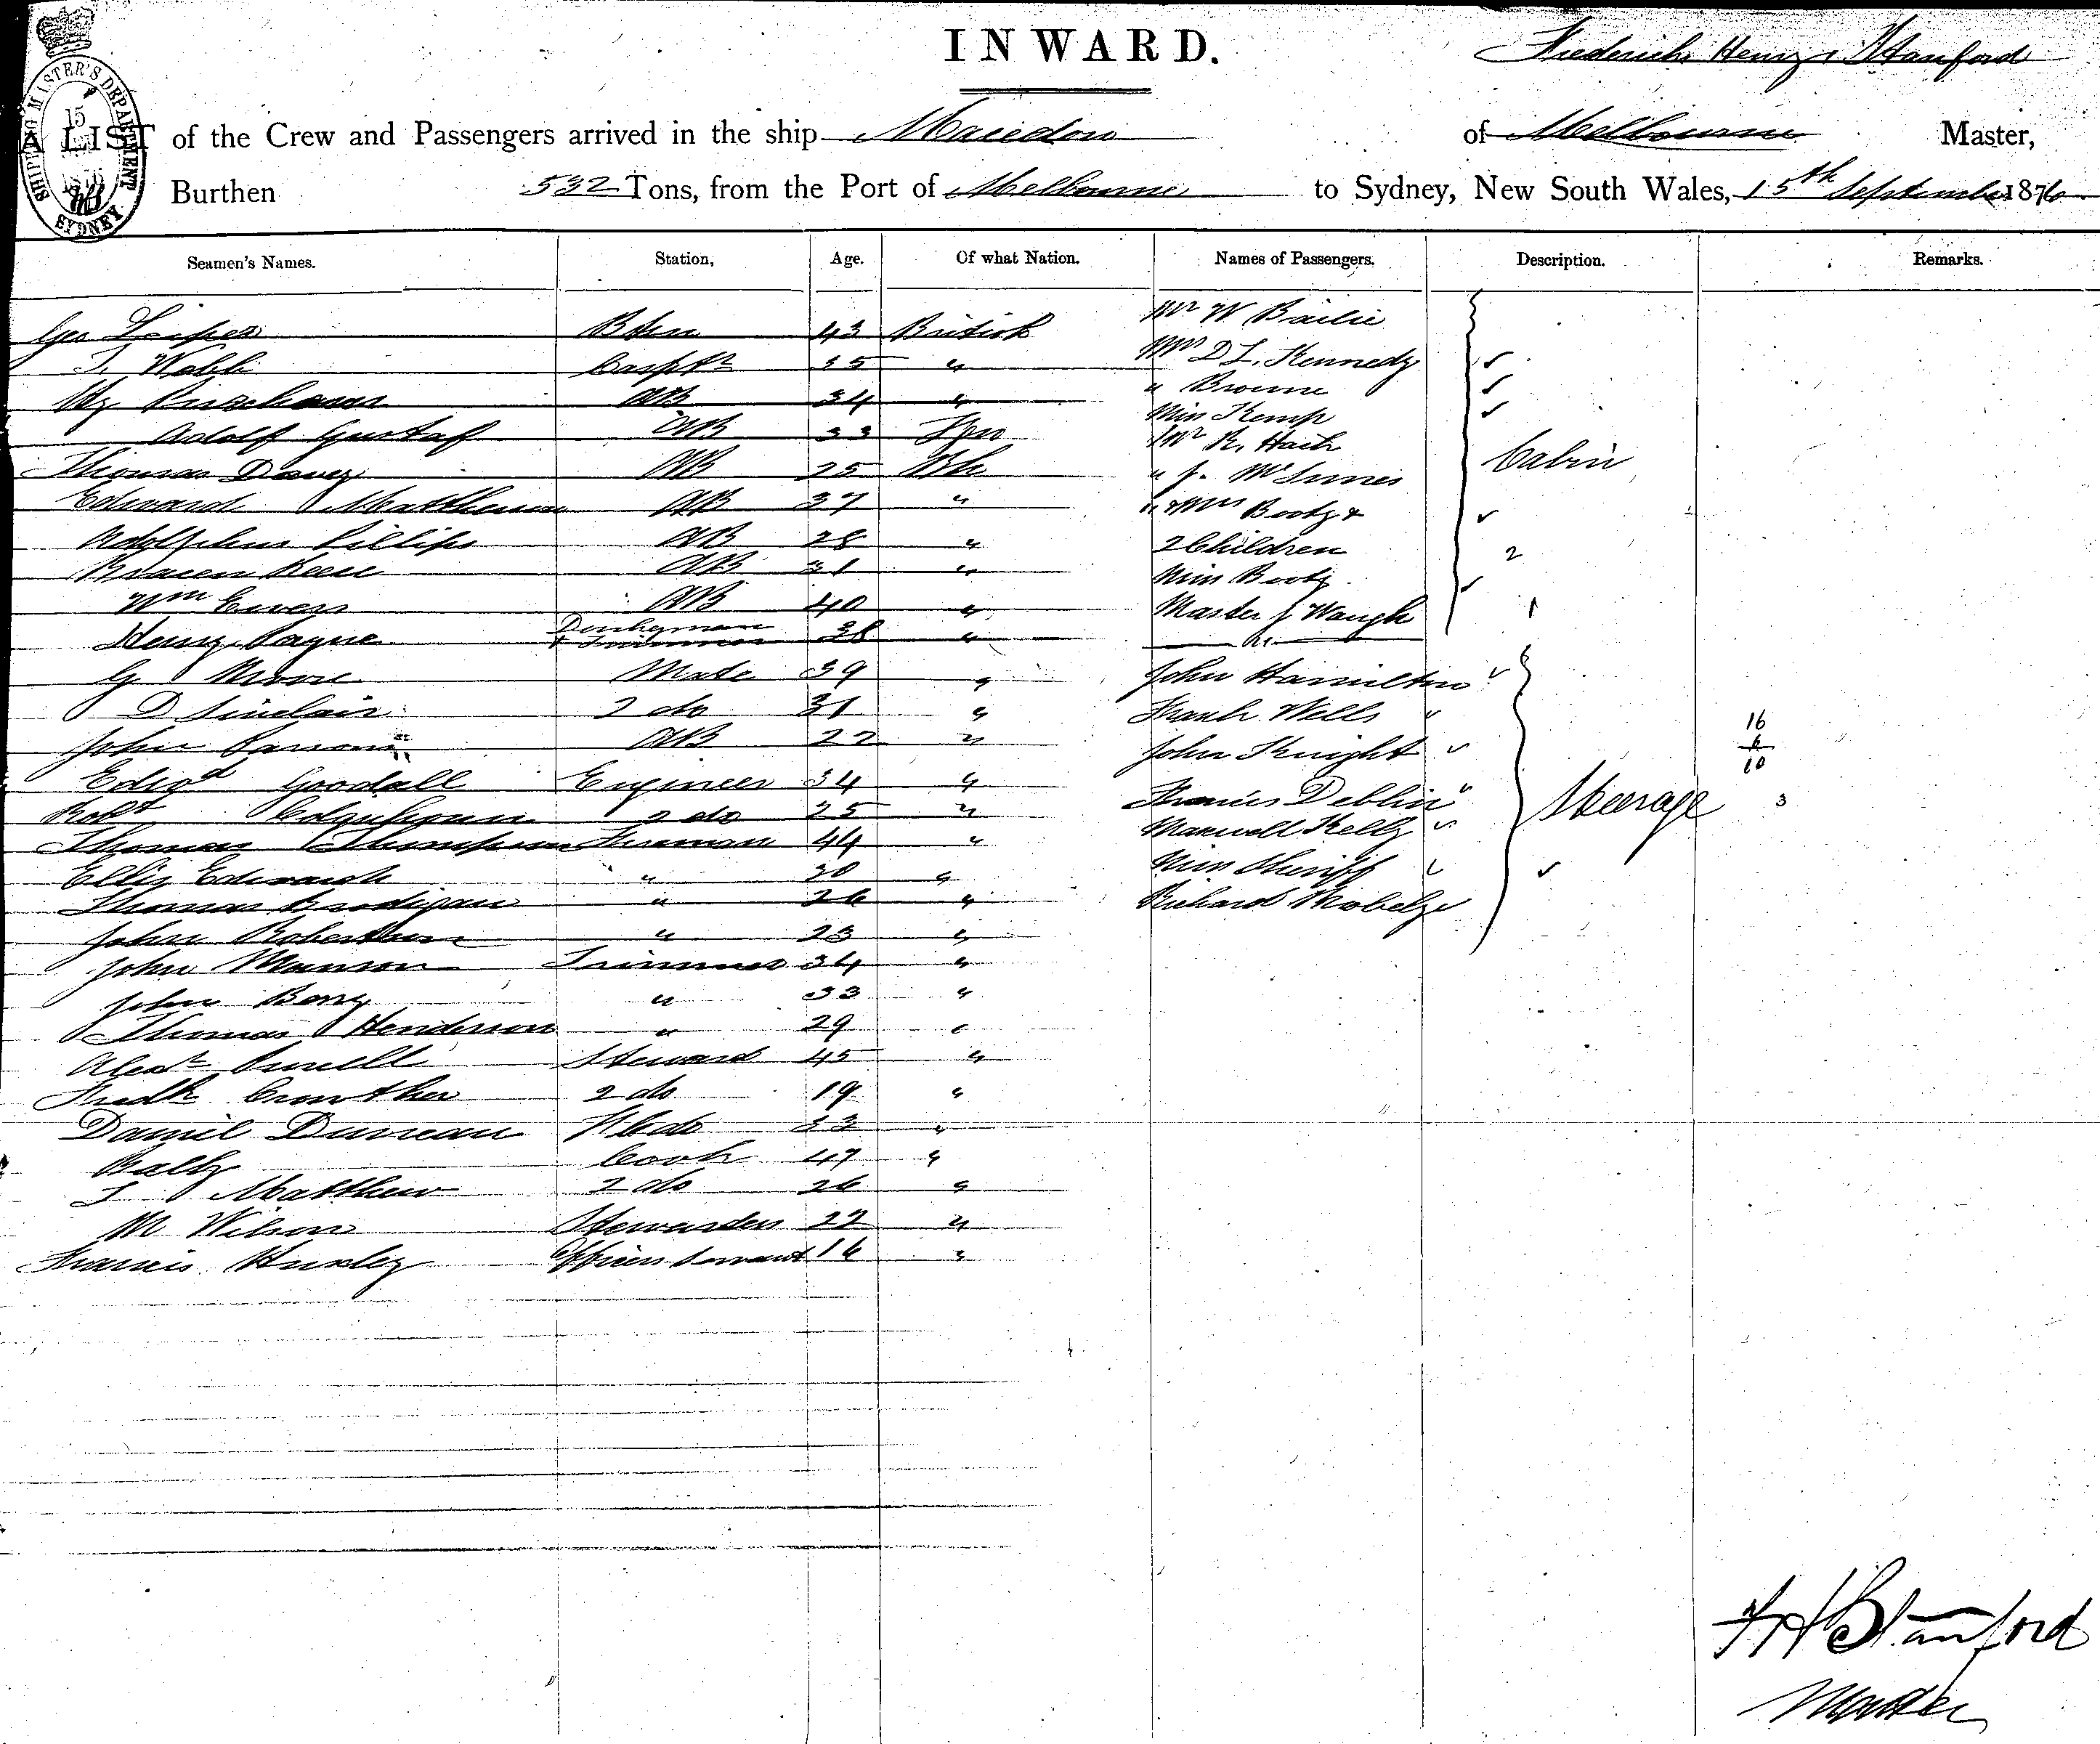 INWARD.
Frederick Henry Stanford
A LIST of the Crew and Passengers arrived in the ship Macedon of Melbourne Master,
Burthen 532 Tons, from the Port of Melbourne to Sydney, New South Wales, 15th September 1876
SHIPPING MASTER'S DEPARTMENT
15
1876
SYDNEY
Seamen's Names. Station, Age. Of what Nation. Names of Passengers. Description. Remarks.
Geo Bsn 43 British Mr W Bailie
T. Webb Carptr 35 " Mrs D L. Kennedy
AB 34 " " Browne
Adolf Gustaf AB 33 Miss Kemp
Thomas Davey AB 25 Bh Mr R. Haith
Edward Matthews AB 37 " " J. McInnes
Adolphus Pillips AB 28 " " & Mrs Booty &
AB 31 " 2 Children 2
Wm Ewers AB 40 " Miss Booty
Henry Payne Donkeyman & Trimmer 38 " Master J Waugh 1
Cabin
G Moore Mate 39 " John Hamilton
D Sinclair 2 do 31 " Frank Wells
John Parsons AB 22 " John Knight
Edwd Goodall Engineer 34 " Francis Deblin
Robt Colquhoun 2 do 25 " Maxwell Kelly
Thomas Thompson Fireman 44 " Miss Sheriff
Ellis Edwards " 30 " Richard
Steerage 3
16
6
10
Thomas Brodigan " 26 "
John Robertson " 23 "
John Munson Trimmer 34 "
John Berry " 33 "
Thomas Henderson " 29 "
Alexr Steward 45 "
Fredk Crowther 2 do 19 "
Daniel Duncan 33 "
Cook 47 "
T Matthew 2 do 26 "
M Wilson Stewardess 22 "
Francis Huxley Officers Servant 16 "
F H Stanford
Master